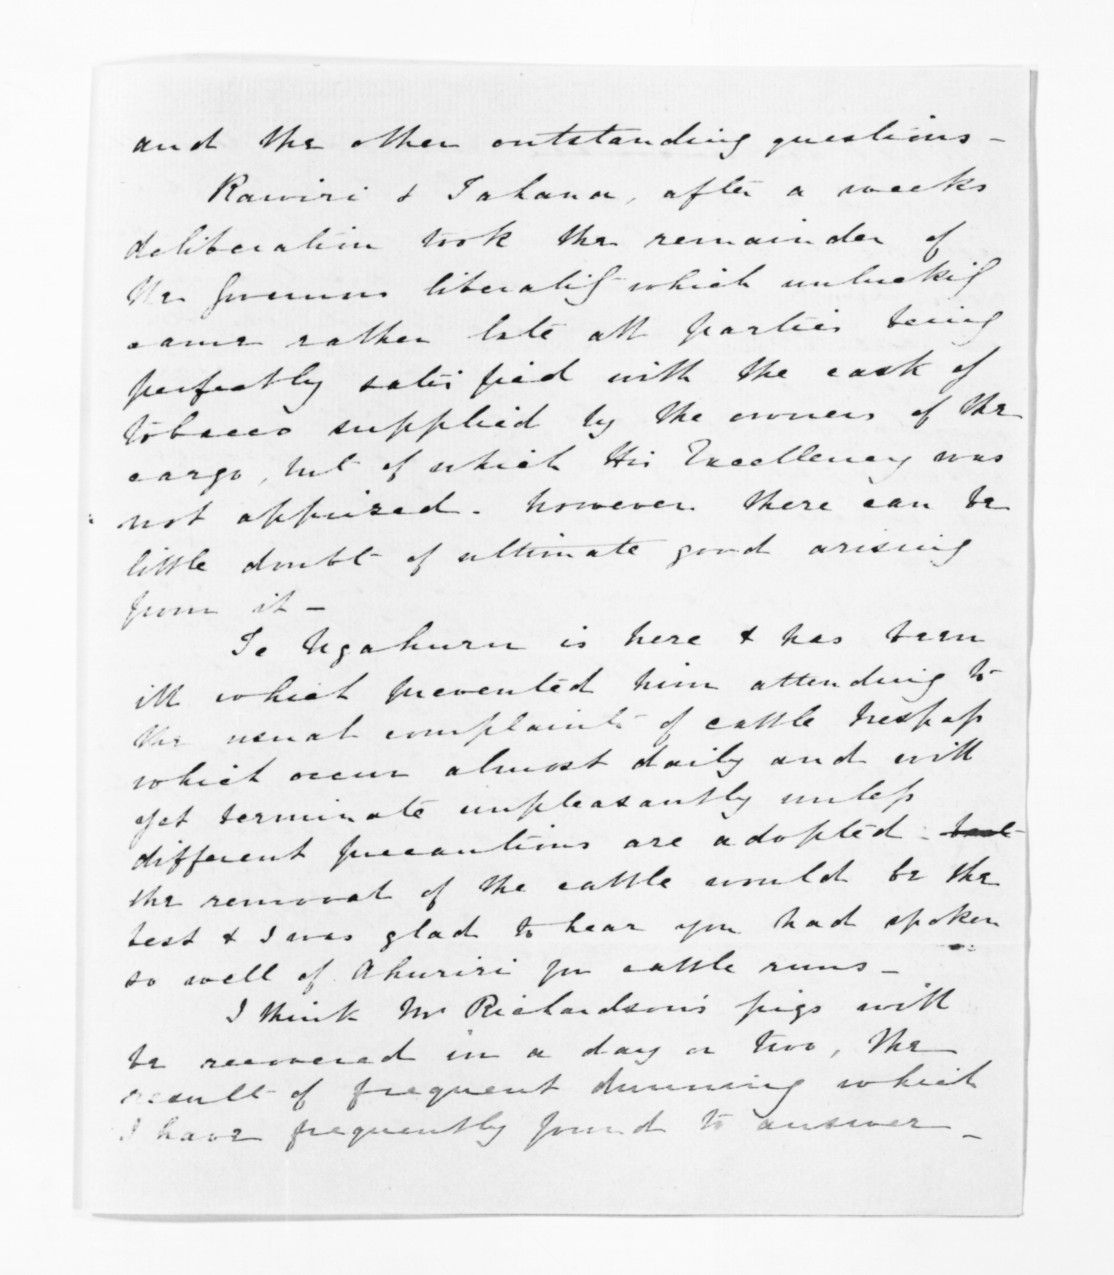 and the other outstanding questions -
Rawiri & Tahana, after a weeks
deliberation took the remainder of
the Governors liberality which unluckily
came rather late all parties being
perfectly satisfied with the cask of
tobacco supplied by the owners of the
cargo, but of which His Excellency was
not apprized. however there can be
little doubt of ultimate good arising
from it -
Te Ngahuru is here & has been
ill which prevented him attending to
the usual complaints of cattle trespass
which occur almost daily and will
yet terminate unpleasantly unless
different precautions are adopted.
the removal of the cattle would be the
best & I was glad to hear you had spoken
so well of Ahuriri for cattle runs -
I think Mr Richardson's pigs will
be recovered in a day or two, the
result of frequent dunning which
I have frequently found to answer -